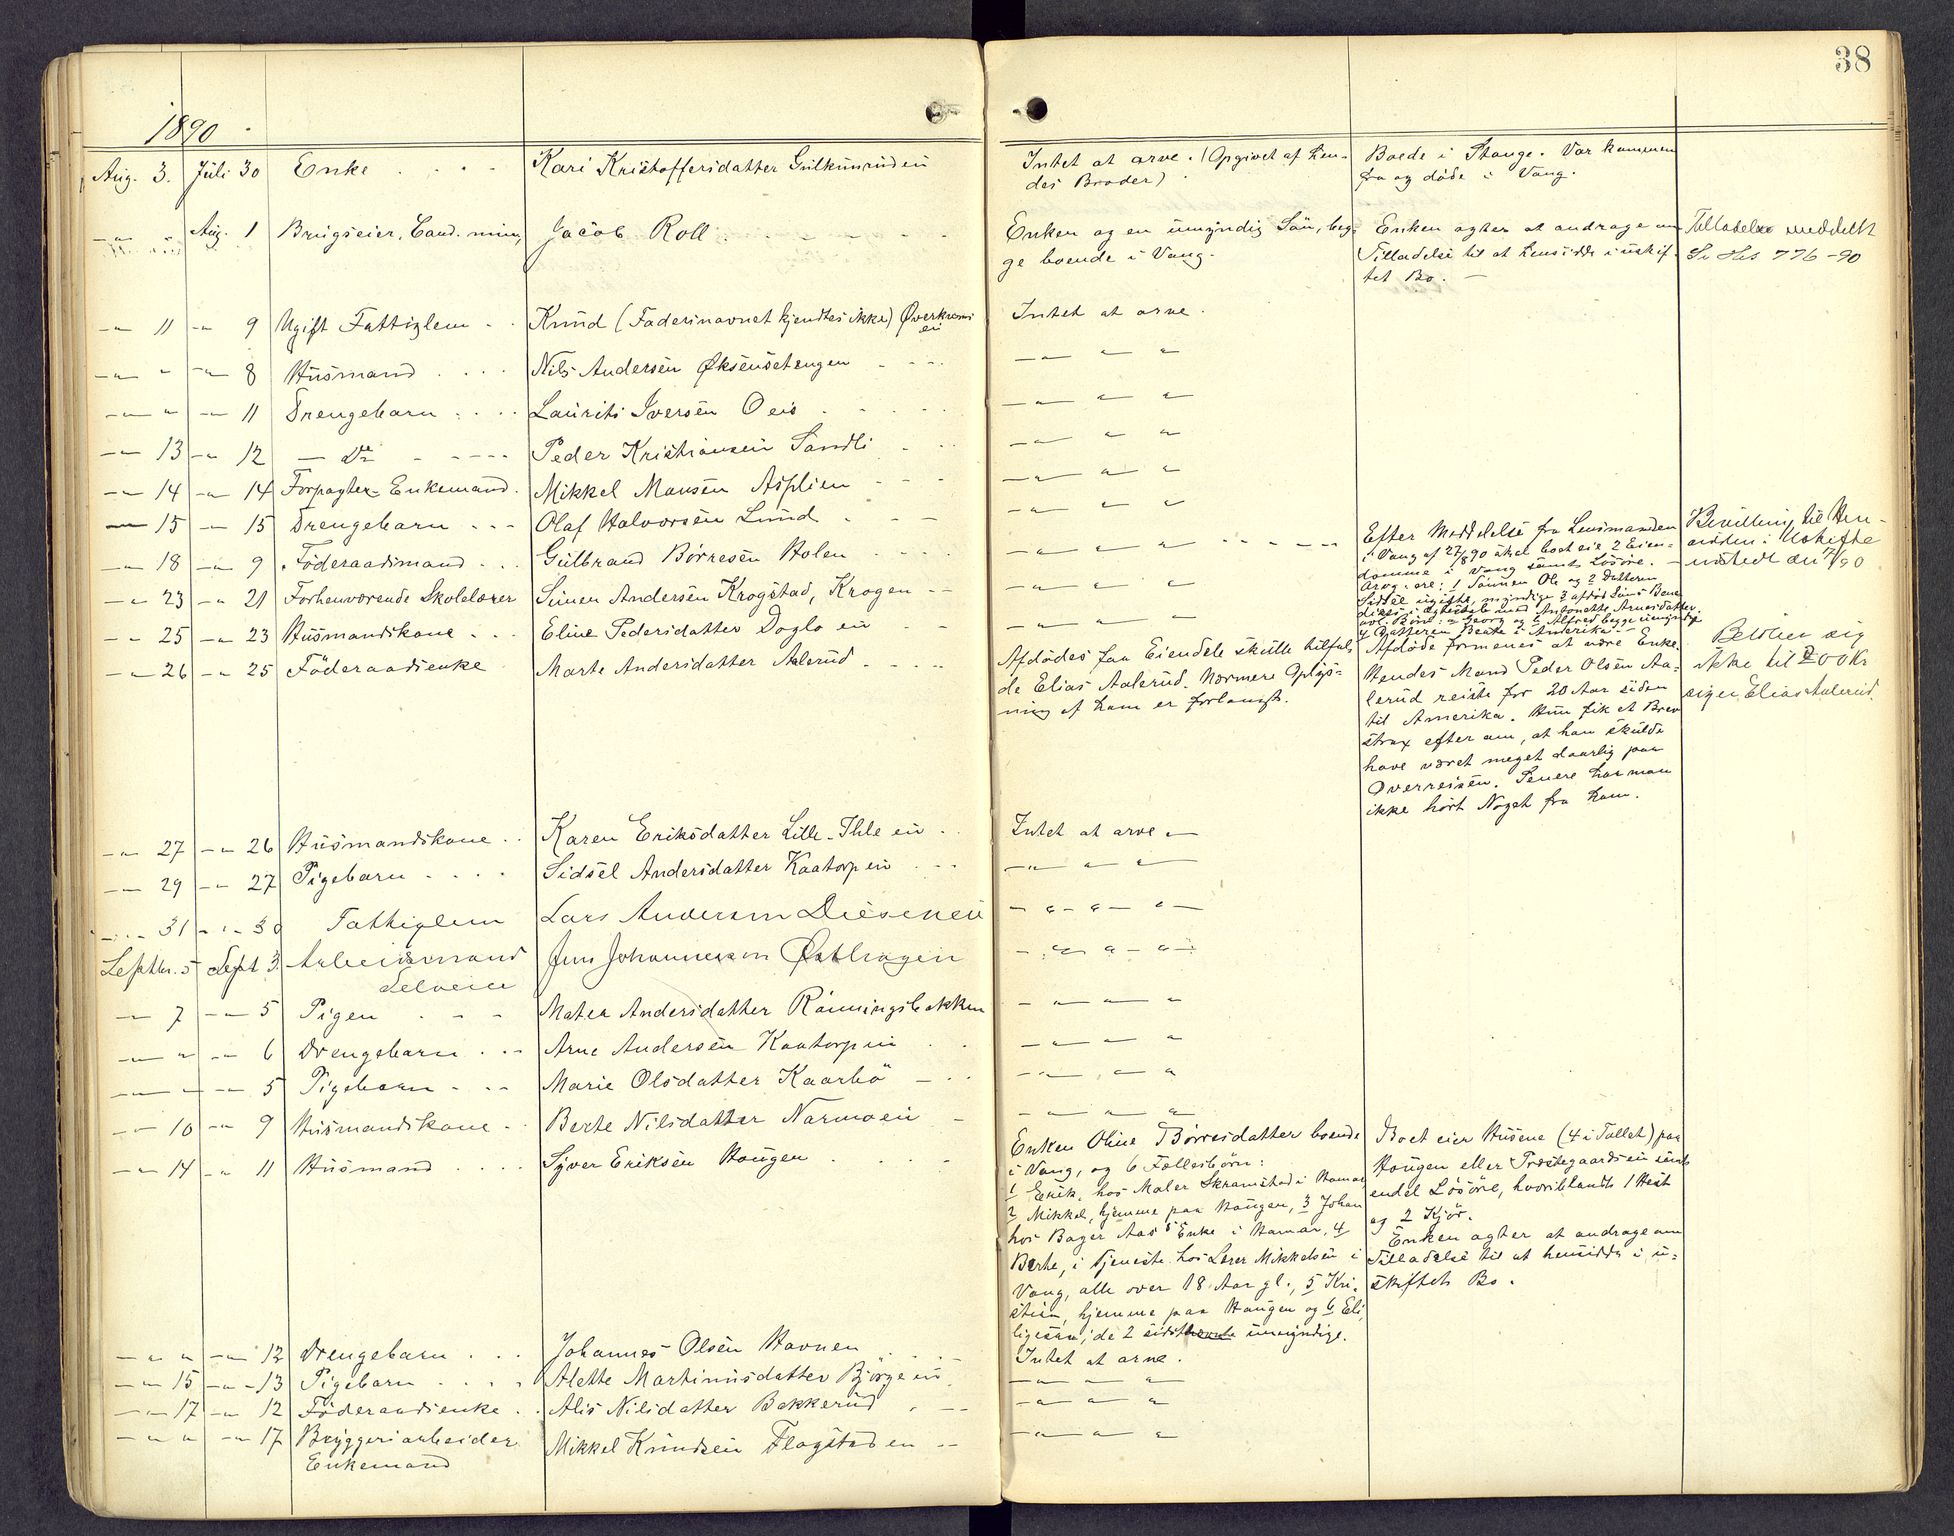 38
1890
Aug. 3. Juli 30 Enke Kari Kristoffersdatter Gulkunruden Intet at arve. (Opgivet af hen- Boede i Stange. Var kommen
des Broder) fra og døde i Vang.
— " — Aug. 1 Brugseier, Cand. min, Jacob Roll Enken og en umyndig Søn, beg- Enken agter at andrage om Tilladelse meddelt
ge boende i Vang. Tilladelse til at hensidde i uskif- 776-90
tet Bo. —
— " — 11 — " — 9 Ugift Fattiglem Knud (Fadersnavnet kjendtes ikke) Intet at arve.
— " — " — " — 8 Husmand Nils Andersen Øksensetengen — " — " "
— " — " — " — 11 Drengebarn Laurits Iversen Oeis — " — " "
— " — 13 — " — 12 — Do — Peder Kristiansen Sandli — " — " "
— " — 14 — " — 14 Forpagter-Enkemand. Mikkel Mansen Asplien — " — " "
— " — 15 — " — 15 Drengebarn Olaf Halvorsen Lund — " — " "
— " — 18 — " — 9 Föderaadsmand Gulbrand Børresen Holen — " — " " Efter Meddelelse fra Lensmanden Bevilling til Hen-
i Vang af 27/8 90 skal boet eie 2 Eien- sidden i Uskifte
domme i Vang samt Løsøre. —
Arvg. ere: 1 Sønnen Ole og 2 Datteren
— " — 23 — " — 21 Forhenværende Skolelærer Simen Andersen Krogstad, Krogen — " — " "
Sidsel ugifte, myndige 3 afdøde Søns
i Ægteskab med Antonette Arnesdatter
avl. Börn: a Georg og b Alfred begge umyndige
4 Datteren Beate i Amerika —
— " — 25 — " — 23 Husmandskone Eline Pedersdatter Doglo ei
— " — 26 — " — 25 Föderaadsenke Marte Andersdatter Aalerud Afdödes faa Eiendele skulle tilfal- Afdøde formenes at være Enke.
de Elias Aalerud. Nærmere Oplys- Hendes Mand Peder Olsen Aa- ikke til 200 Kr
ning af ham er forlangt. lerud reiste for 20 Aar siden siger Elias Aalerud.
til Amerika. Hun fik et Brev
strax efter om, at han skulde
have været meget daarlig paa
Overreisen. Senere har man
ikke hört Noget fra ham.
— " — 27 — " — 26 Husmandskone Karen Eriksdatter Lille-Ihle ei Intet at arve —
— " — 29 — " — 27 Pigebarn Sidsel Andersdatter Kaatorp ei — " — " "
— " — 31 — " — 30 Fattiglem Lars Andersen Diesenei — " — " — " —
Septbr. 5 Sept 3. Arbeidsmand Jens Johannesen Østhagen — " — " — " —
Selveier
— " — 7 — " — 5 Pigen Matea Andersdatter Rønningsbakken — " — " "
— " — " — " — 6 Drengebarn Arne Andersen Kaatorp ei — " — " "
— " — " — " — 5 Pigebarn Marie Olsdatter Kaarbö — " — " "
— " — 10 — " — 9 Husmandskone Berte Nilsdatter Narmoei — " — " "
— " — 14 — " — 11 Husmand Syver Eriksen Hougen Enken Oline Børresdatter boende Boet eier Husene (4 i Tallet) paa
i Vang, og 6 Fællesbørn: Hougen eller Præstegaardsei samt
1 Erik, hos Maler Skramstad i Hamar, endel Lösöre, hvoriblandt 1 Hest
2 Mikkel, hjemme paa Hougen, 3 Johan og 2 Kjør.
hos Bager Aas' Enke i Hamar, 4 Enken agter at andrage om
Berte, i Tjeneste hos Lærer Mikkelsen i Tilladelse til at hensidde i u-
Vang, alle over 18 Aar gl., 5 Kri- skiftet Bo.
stian, hjemme paa Hougen og 6 Eli,
ligesaa; de 2 sidst umyndige.
— " — " — " — 12 Drengebarn Johannes Olsen Havnen Intet at arve.
— " — 15 — " — 13 Pigebarn Alette Martinusdatter Bjørge ei — " — " "
— " — 17 — " — 12 Föderaadsenke Alis Nilsdatter Bakkerud — " — " "
— " — " — " — 17 Bryggeriarbeider Mikkel Knudsen Flagstaden — " — " "
Enkemand